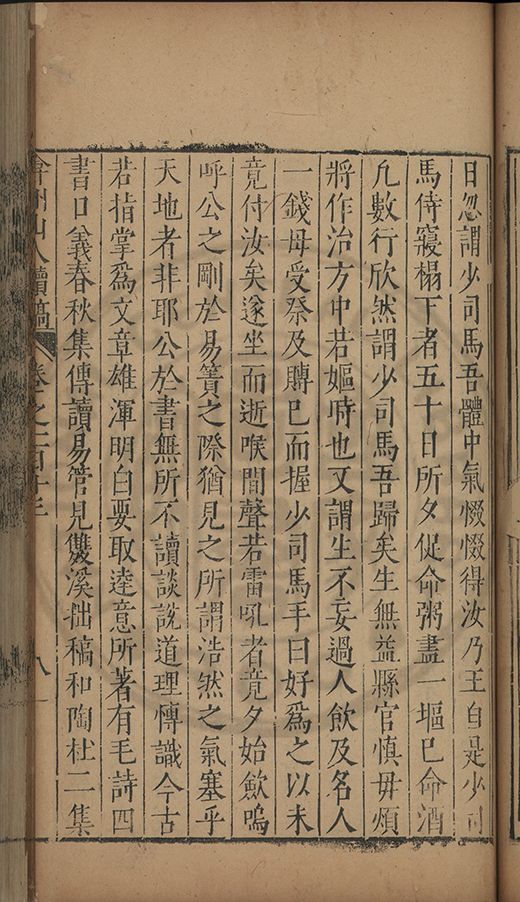 日忽謂少司馬吾體中氣惙惙得汝乃王自是少司
馬侍寢榻下者五十日所夕促命粥盡一堀已命酒
凢數行欣然謂少司馬吾歸矣生無益縣官慎毋煩
將作治方中若嫗時也又謂生不妄過人飲及名人
一錢毋受祭及賻已而握少司馬手曰好爲之以未
竟付汝矣遂坐而逝喉間聲若雷吼者竟夕始歛嗚
呼公之剛於易簀之際猶見之所謂浩然之氣塞乎
天地者非耶公於書無所不讀談說道理慱識今古
若指掌爲文章雄渾明白要取達意所著有毛詩四
書口義春秋集傳讀易管見雙溪拙稿和陶杜二集
弇州山人續稿 卷之一百廿三 八